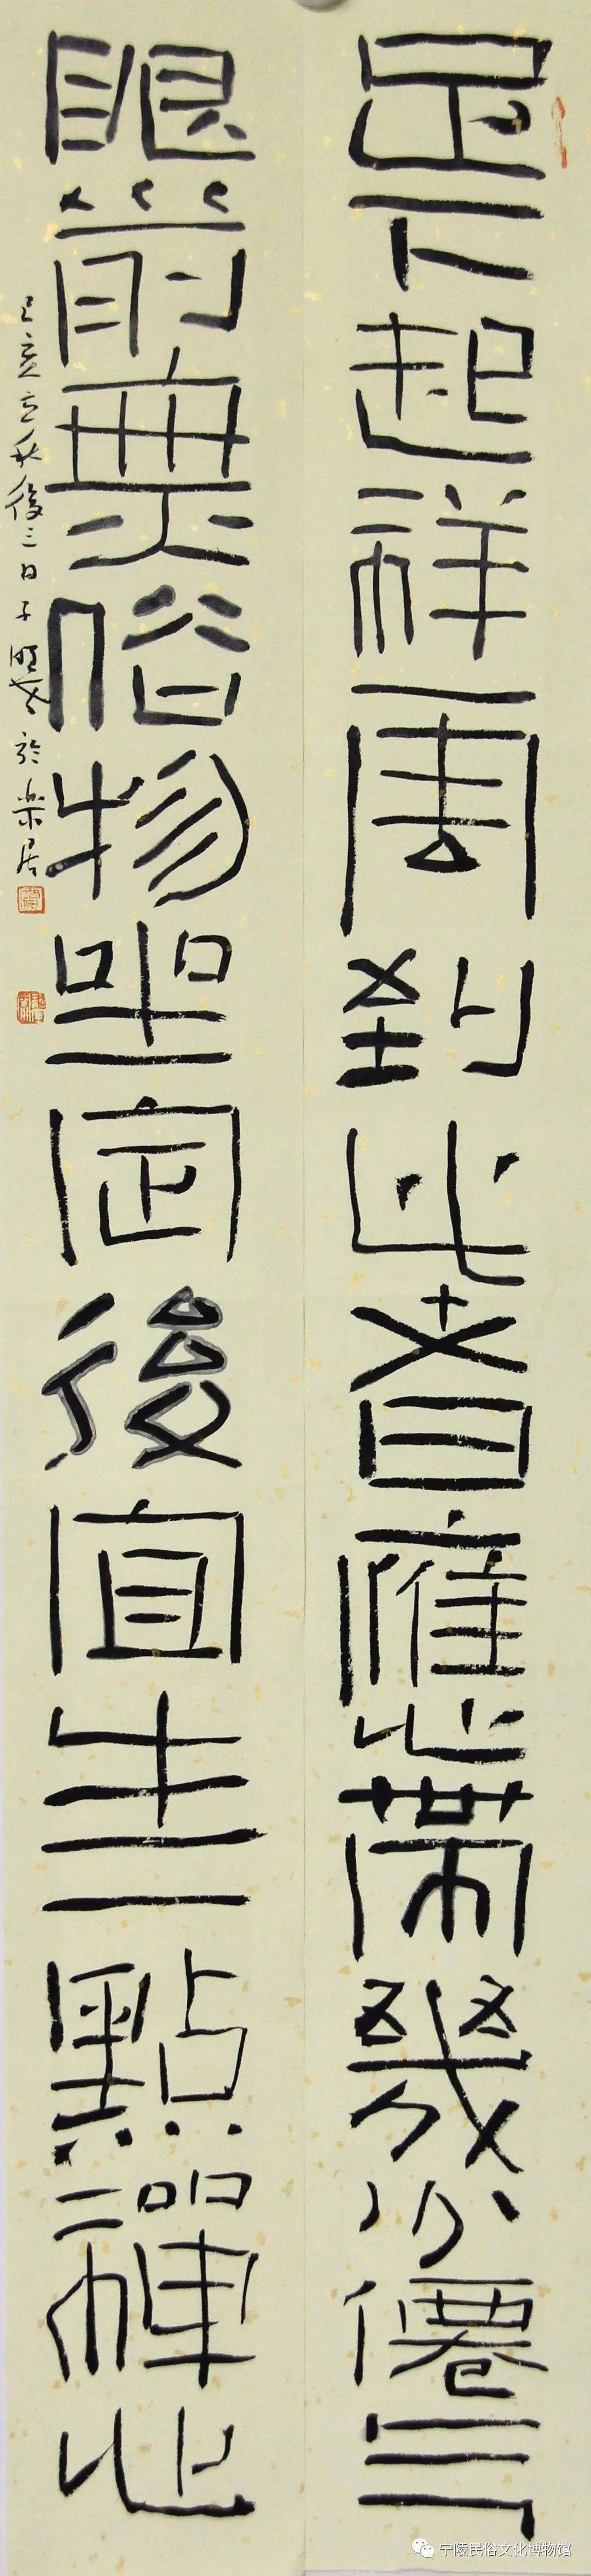 足下起祥雲到此者應帶幾分僊气
眼前無俗物坐定後宜生一點禪心
己亥立秋後三日子
於樂居
宁陵民俗文化博物馆